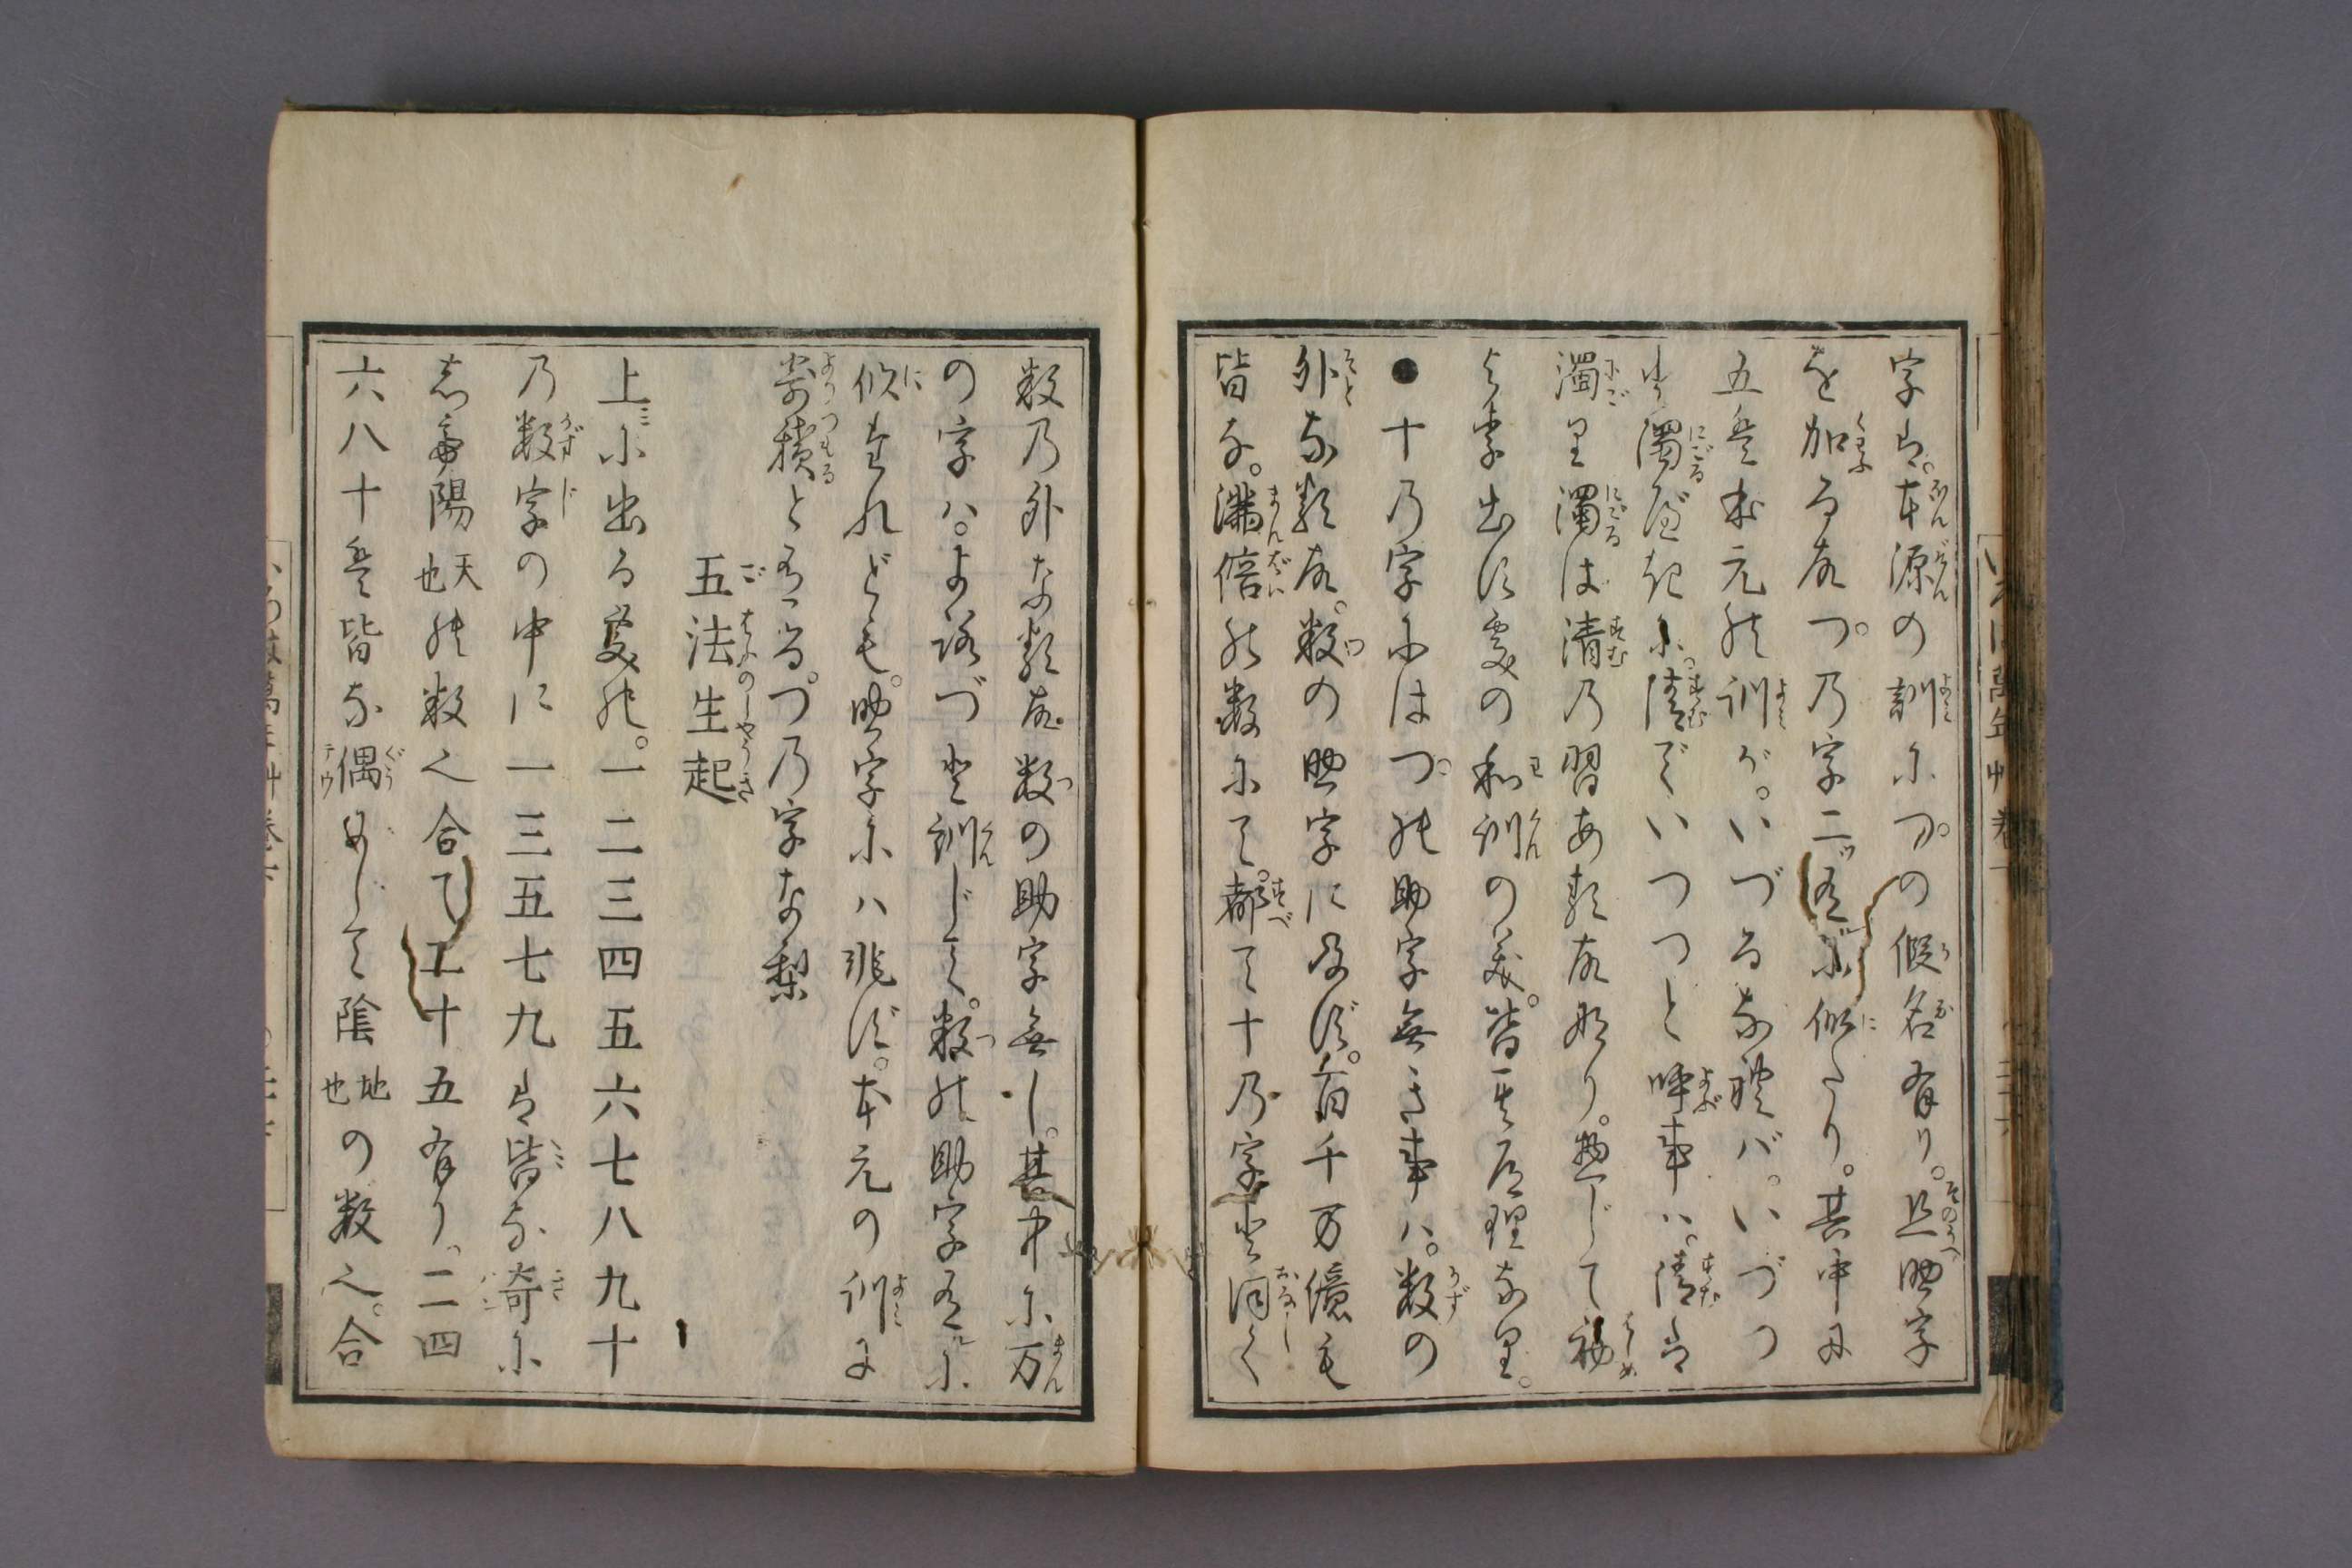 字は。本源の訓につ。の假名有り。且助字
を加る故。つ乃字二ツ有に似たり。其中に
五は本元の訓が。いづるなれバ。いづつ
と濁べきに。清でいつつと呼事ハ。清は
濁り濁は清乃習ある故なり。惣じて初
より書出す処の和訓の義。皆其道理なり。
●十乃字にはつ。の助字無き事ハ。数の
外なる故。数の助字に及ばず。百千万億も
皆な。満倍の数にて。都て十乃字と同く
数乃外なる故。数の助字無し。其中に万
の字ハ。よろづと訓じて。数の助字有に
似たれども。助字にハ非ず。本元の訓よ
寄積と有る。つ乃字な梨
五法生起
上に出る処の。一二三四五六七八九十
乃数字の中に一三五七九は皆な奇に
して陽天也の数也合て二十五有り。二四
六八十は皆な偶にして陰地也の数也。合